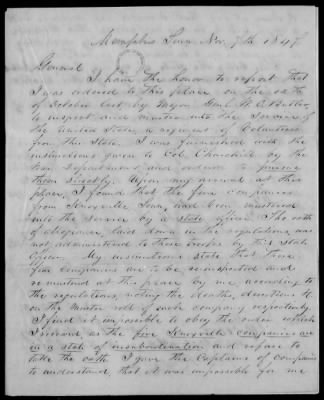 Memphis Tenn Nov. 7th 1847
General
I have the honor to report that
I was ordered to this place on the
of October last by Major Genl W. O. Butler,
to inspect and muster into the Service of
the United States, a regiment of Volunteers
from this State. I was furnished with the
instructions given to Col. Churchill by the
War Department and ordered to pursue
them strictly. Upon my arrival at this
place, I found that the five companies
from Knoxville Tenn, had been mustered
into the service by a state officer. The oath
of allegiance, laid down in the regulations, was
not administered to these troops by this State
Officer. My instructions state that these
five companies are to be reinspected and
remustered at this place by me according to
the regulations, noting the deaths, desertions &c
on the Muster roll of each company respectively.
I find it impossible to obey the order which
I received as the five Knoxville companies are
in a state of insubordination and refuse to
take the oath. I gave the Captains of companies
to understand that it was impossible for me